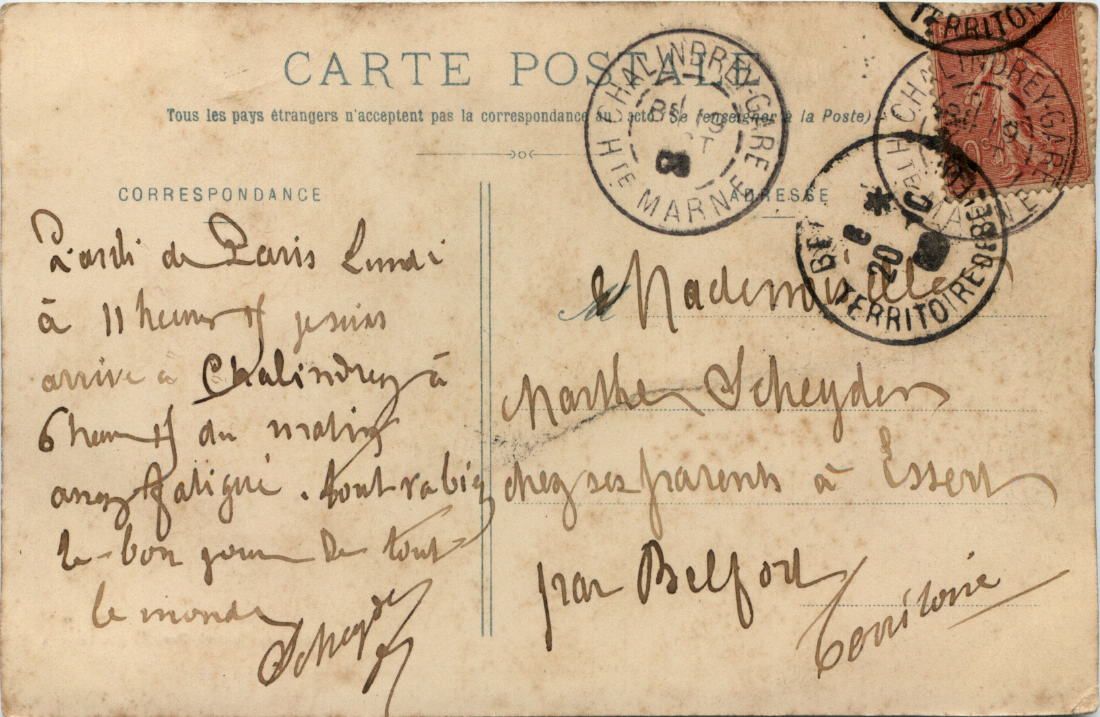 CARTE POSTALE
Tous les pays étrangers n'acceptent pas la correspondance au recto (Se renseigner à la Poste)
CORRESPONDANCE
Parti de Paris Lundi
à 11 heures je suis
arrivé a Chalindrey à
6 heures du matin
assez fatigué. tout va bien
le bonjour de tout
le monde
Scheyder
ADRESSE
M
Mademoiselle
Marthe Scheyder
chez ses parents à Essert
par Belfort
Territoire
CHALINDREY-GARE
HTE MARNE
CHALINDREY-GARE
HTE MARNE
TERRITOIRE DE BELFORT
20 10
TERRITOIR